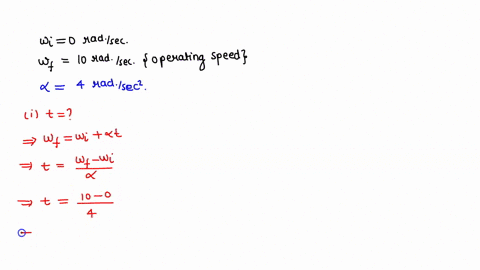 ωi = 0 rad./sec.
ωf = 10 rad./sec. {operating speed}
α = 4 rad./sec².
(i) t = ?
⇒ ωf = ωi + αt
⇒ t = (ωf − ωi)/α
⇒ t = (10 − 0)/4